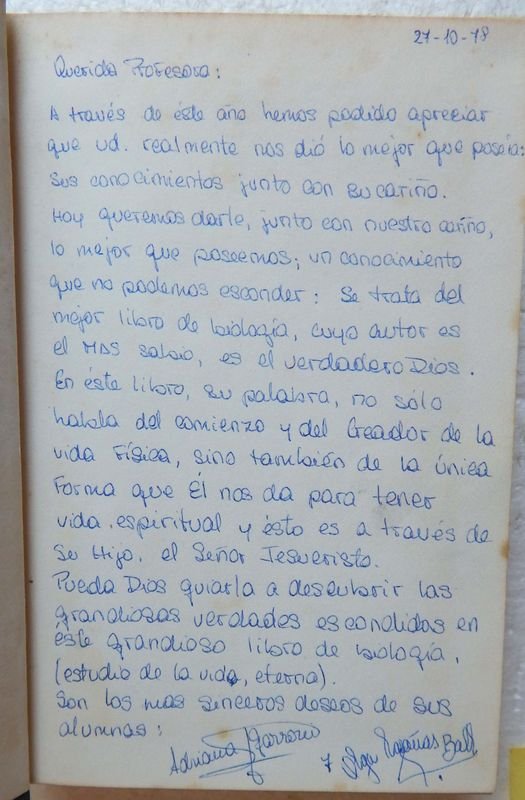 27-10-78
Querida Profesora:
A través de éste año hemos podido apreciar
que ud. realmente nos dió lo mejor que poseía:
sus conocimientos junto con su cariño.
Hoy queremos darle, junto con nuestro cariño,
lo mejor que poseemos; un conocimiento
que no podemos esconder: Se trata del
mejor libro de biología, cuyo autor es
el MAS sabio, es el verdadero Dios.
En éste libro, su palabra, no sólo
habla del comienzo y del Creador de la
vida Física, sino también de la única
Forma que Él nos da para tener
vida espiritual y ésto es a través de
Su Hijo, el Señor Jesucristo.
Pueda Dios guiarla a descubrir las
grandiosas verdades escondidas en
éste grandioso libro de biología,
(estudio de la vida, eterna).
Son los mas sinceros deseos de sus
alumnas:
Adriana